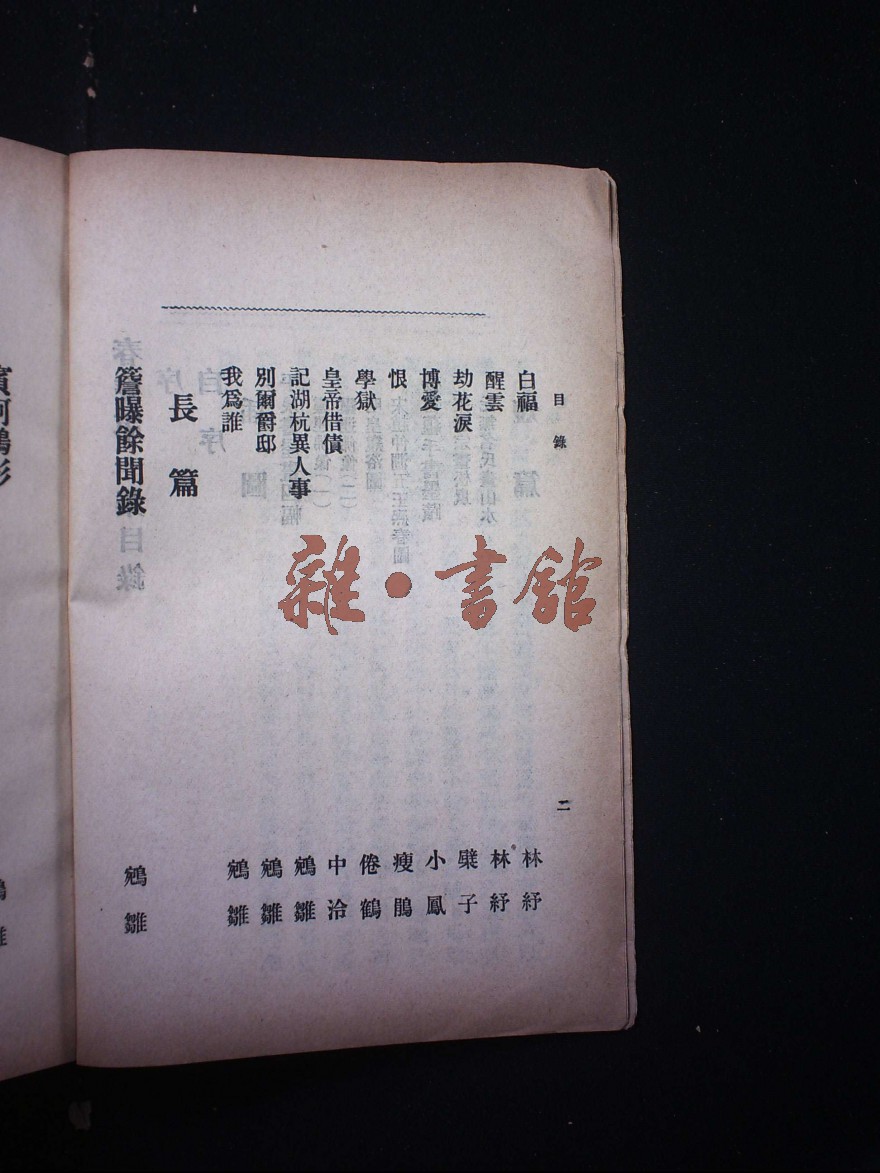 目錄 二
白福 林紓
醒雲 林紓
劫花淚 檗子
博愛 小鳳
恨 瘦鵑
學獄 倦鶴
皇帝借債 中泠
記湖杭異人事 鵷雛
別爾爵邸 鵷雛
我爲誰 鵷雛
長篇
簷曝餘聞錄 鵷雛
雜·書館